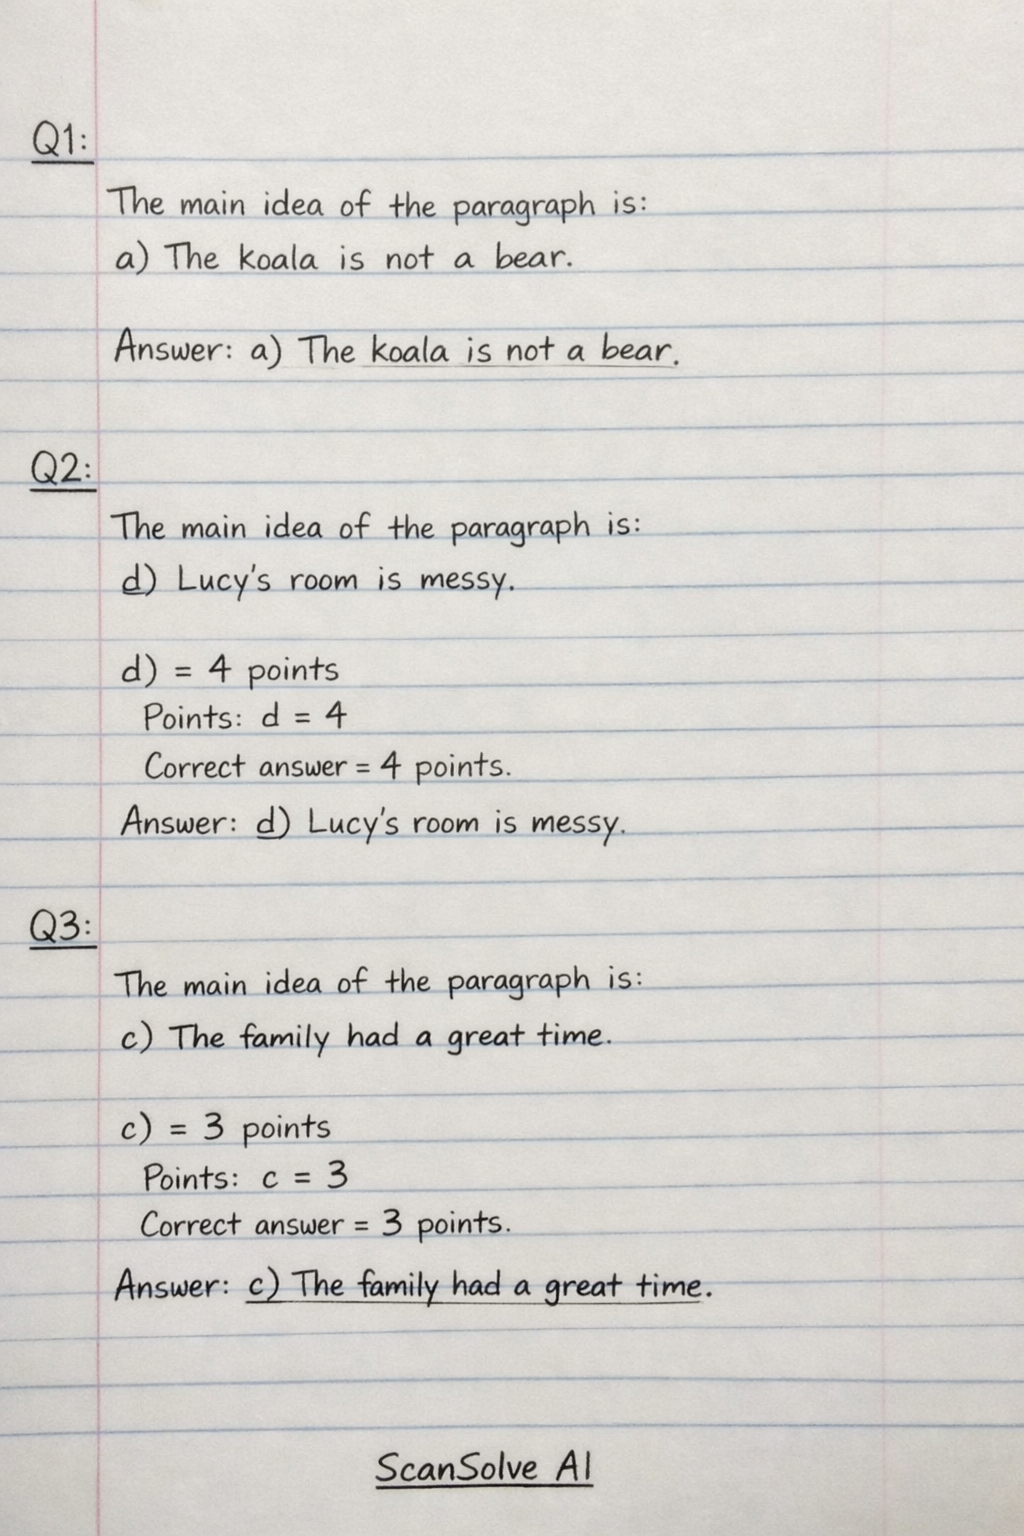 Q1:
The main idea of the paragraph is:
a) The koala is not a bear.
Answer: a) The koala is not a bear.
Q2:
The main idea of the paragraph is:
d) Lucy's room is messy.
d) = 4 points
Points: d = 4
Correct answer = 4 points.
Answer: d) Lucy's room is messy.
Q3:
The main idea of the paragraph is:
c) The family had a great time.
c) = 3 points
Points: c = 3
Correct answer = 3 points.
Answer: c) The family had a great time.
ScanSolve AI